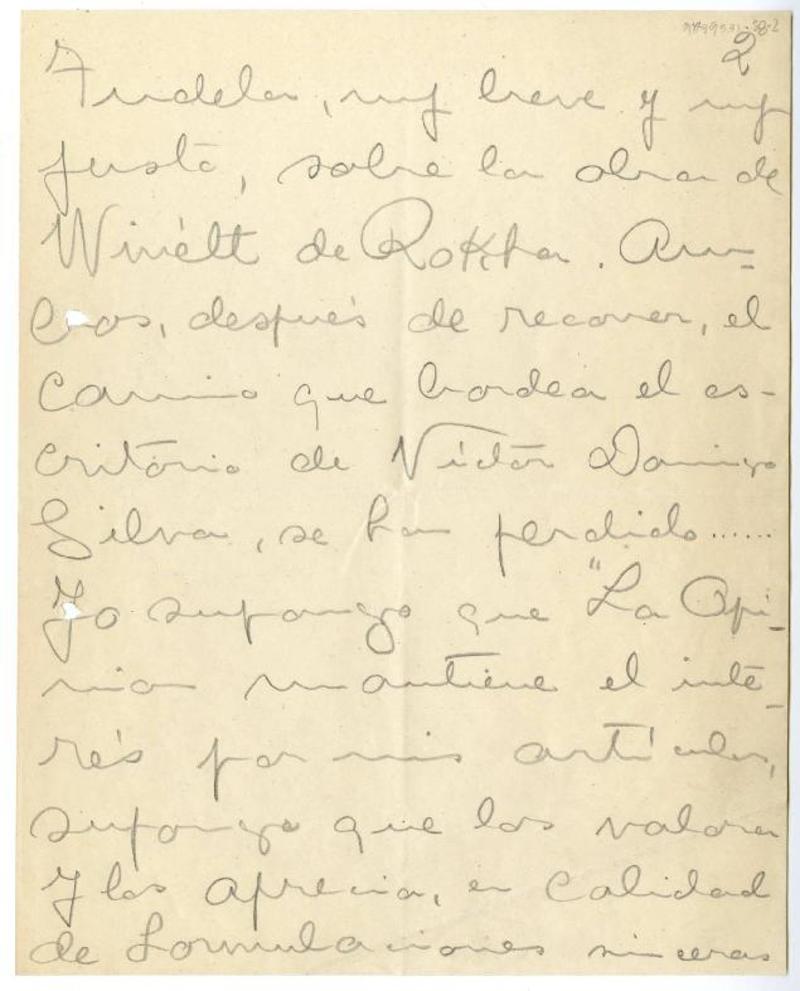 2
Tudela, muy breve y muy
justo, sobre la obra de
Winétt de Rokha. Am-
bos, después de recorrer, el
camino que bordea el es-
critorio de Víctor Domingo
Silva, se han perdido......
Yo supongo que "La Opi-
nion mantiene el inte-
rés por mis artículos,
supongo que los valora
y los aprecia, en calidad
de formulaciones sinceras